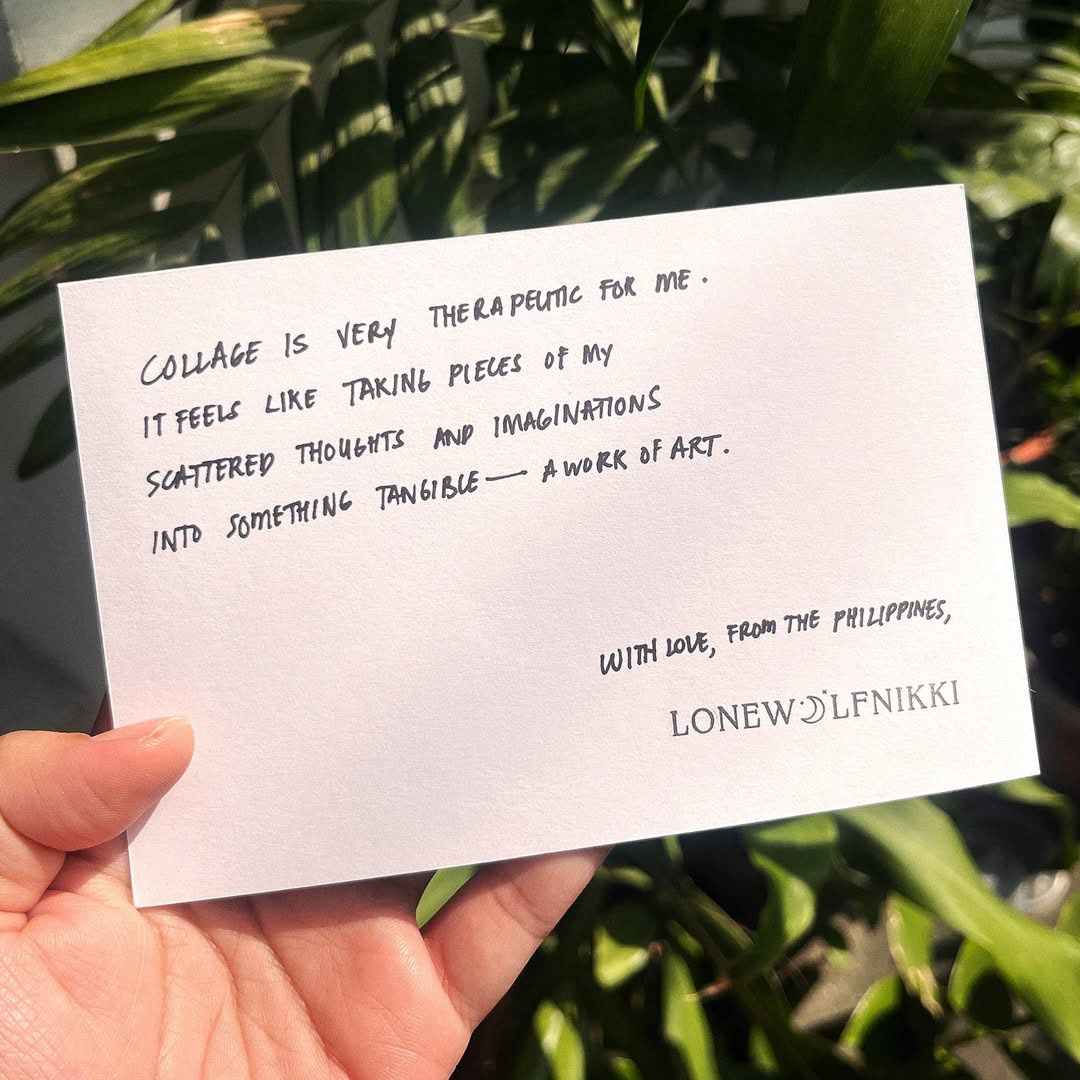 COLLAGE IS VERY THERAPEUTIC FOR ME.
IT FEELS LIKE TAKING PIECES OF MY
SCATTERED THOUGHTS AND IMAGINATIONS
INTO SOMETHING TANGIBLE — A WORK OF ART.
WITH LOVE, FROM THE PHILIPPINES,
LONEWOLFNIKKI